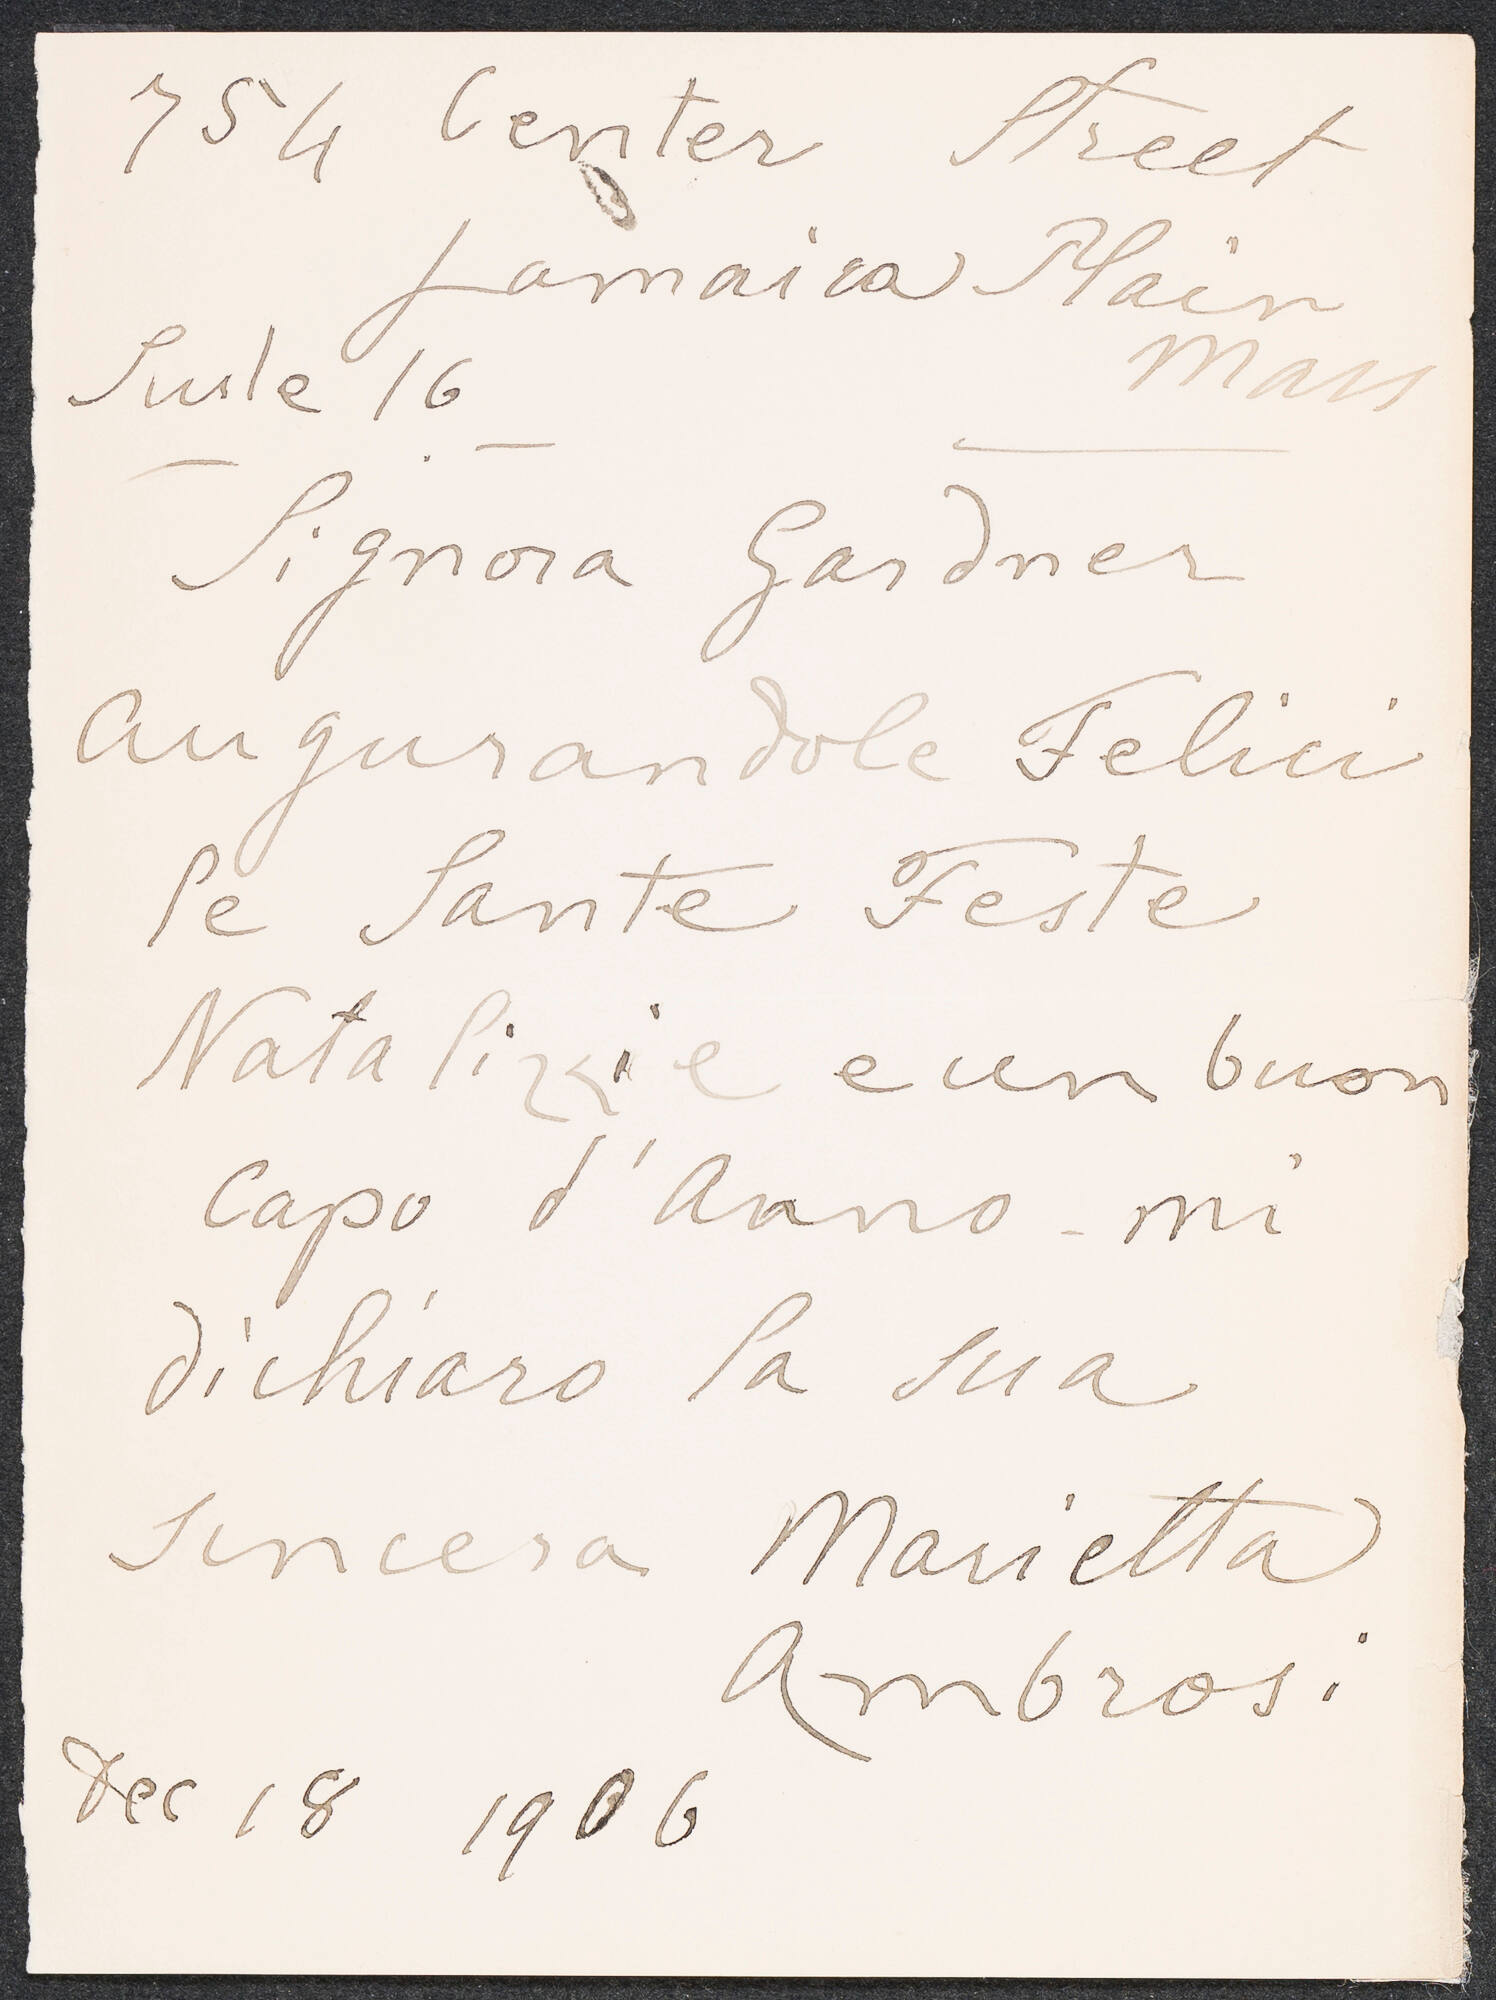 754 Center Street
Jamaica Plain
Mass
Suite 16
Signora Gardner
Augurandole Felici
le Sante Feste
Natalizzie e un buon
Capo d'Anno - mi
dichiaro la sua
sincera Marietta
Ambrosi
Dec 18 1906